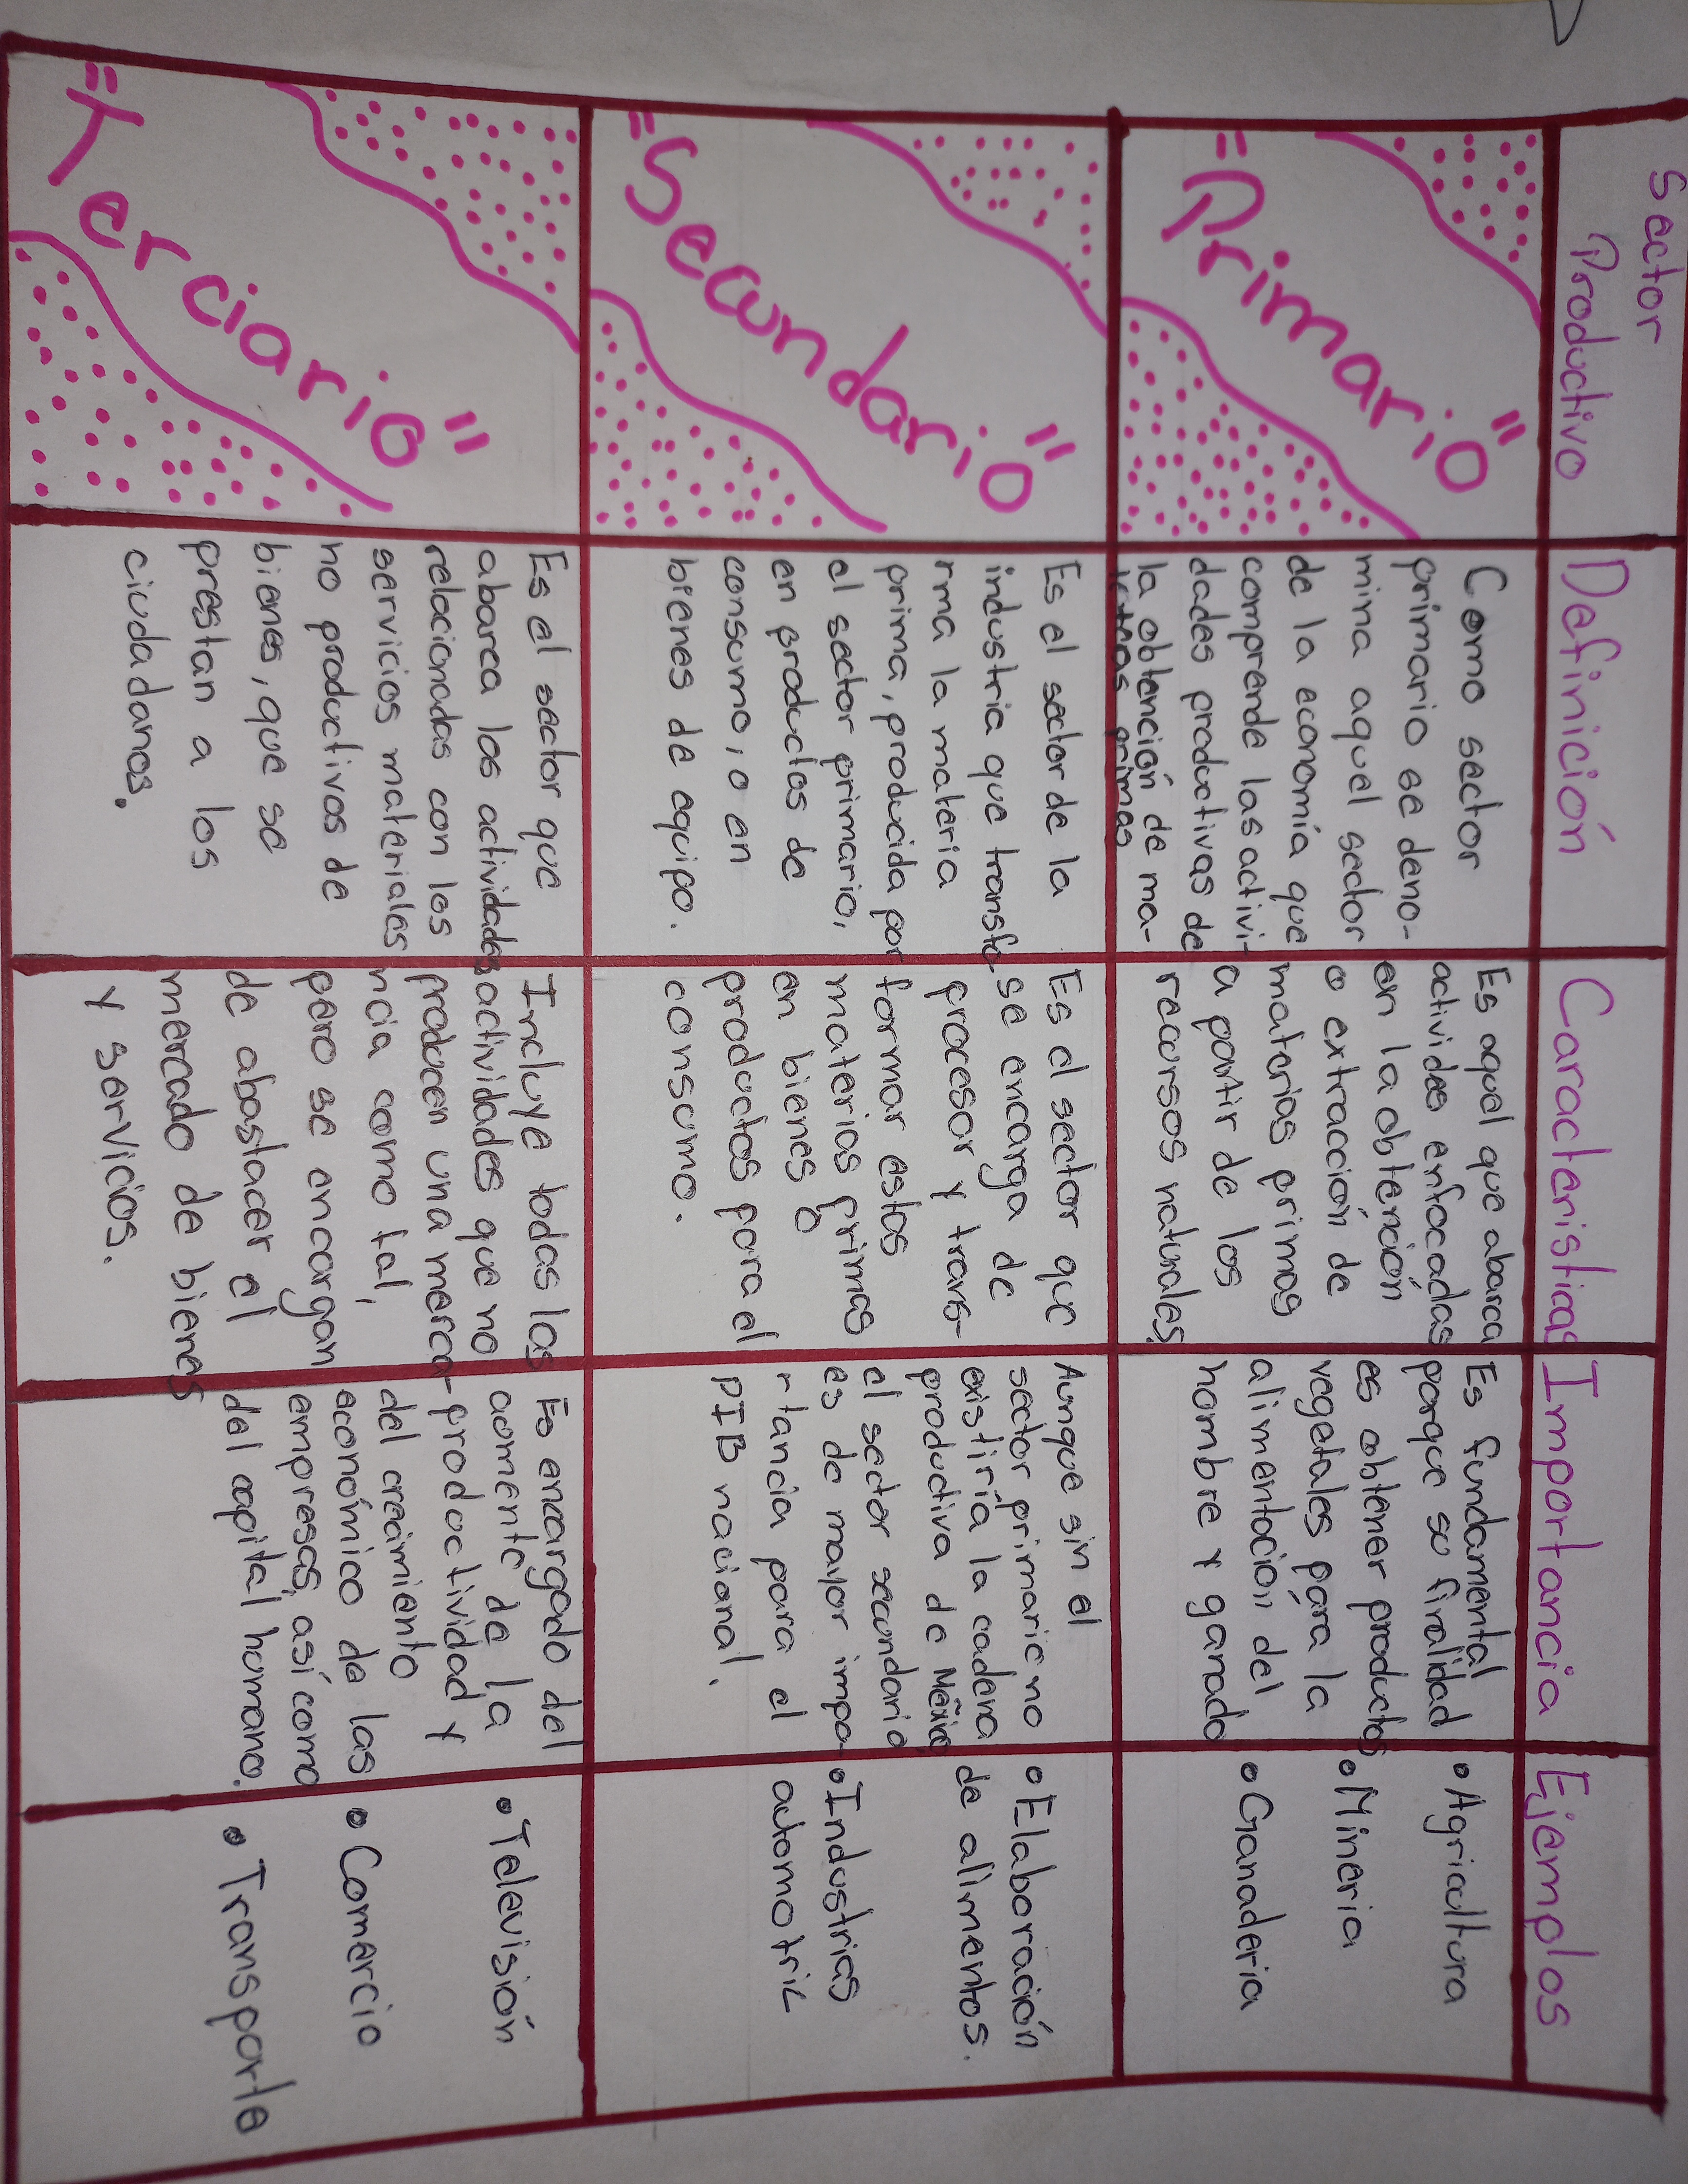 Sector
Productivo
Definición
Caracteristicas
Importancia
Ejemplos
"Primario"
Como sector
primario se deno-
mina aquel sector
de la economía que
comprende las activi-
dades productivas de
la obtención de ma-
terias primas
Es aquel que abarca
actividades enfocadas
en la obtención
o extracción de
materias primas
a partir de los
recursos naturales.
Es fundamental
porque su finalidad
es obtener productos
vegetales para la
alimentación del
hombre y ganado
• Agricultura
• Mineria
• Ganaderia
"Secundario"
Es el sector de la
industria que transfo
rma la materia
prima, producida por
el sector primario,
en productos de
consumo, o en
bienes de equipo.
Es el sector que
se encarga de
procesar y trans-
formar estas
materias primas
en bienes o
productos para el
consumo.
Aunque sin el
sector primario no
existiría la cadena
productiva de México
el sector secundario
es de mayor impo-
rtancia para el
PIB nacional.
• Elaboración
de alimentos.
• Industrias
automotriz
"Terciario"
Es el sector que
abarca las actividades
relacionadas con los
servicios materiales
no productivos de
bienes, que se
prestan a los
ciudadanos.
Incluye todas las
actividades que no
producen una merca-
ncia como tal,
pero se encargan
de abastacer el
mercado de bienes
y servicios.
Es encargado del
aumento de la
productividad y
del crecimiento
económico de las
empresas, así como
del capital humano.
• Televisión
• Comercio
• Transporte